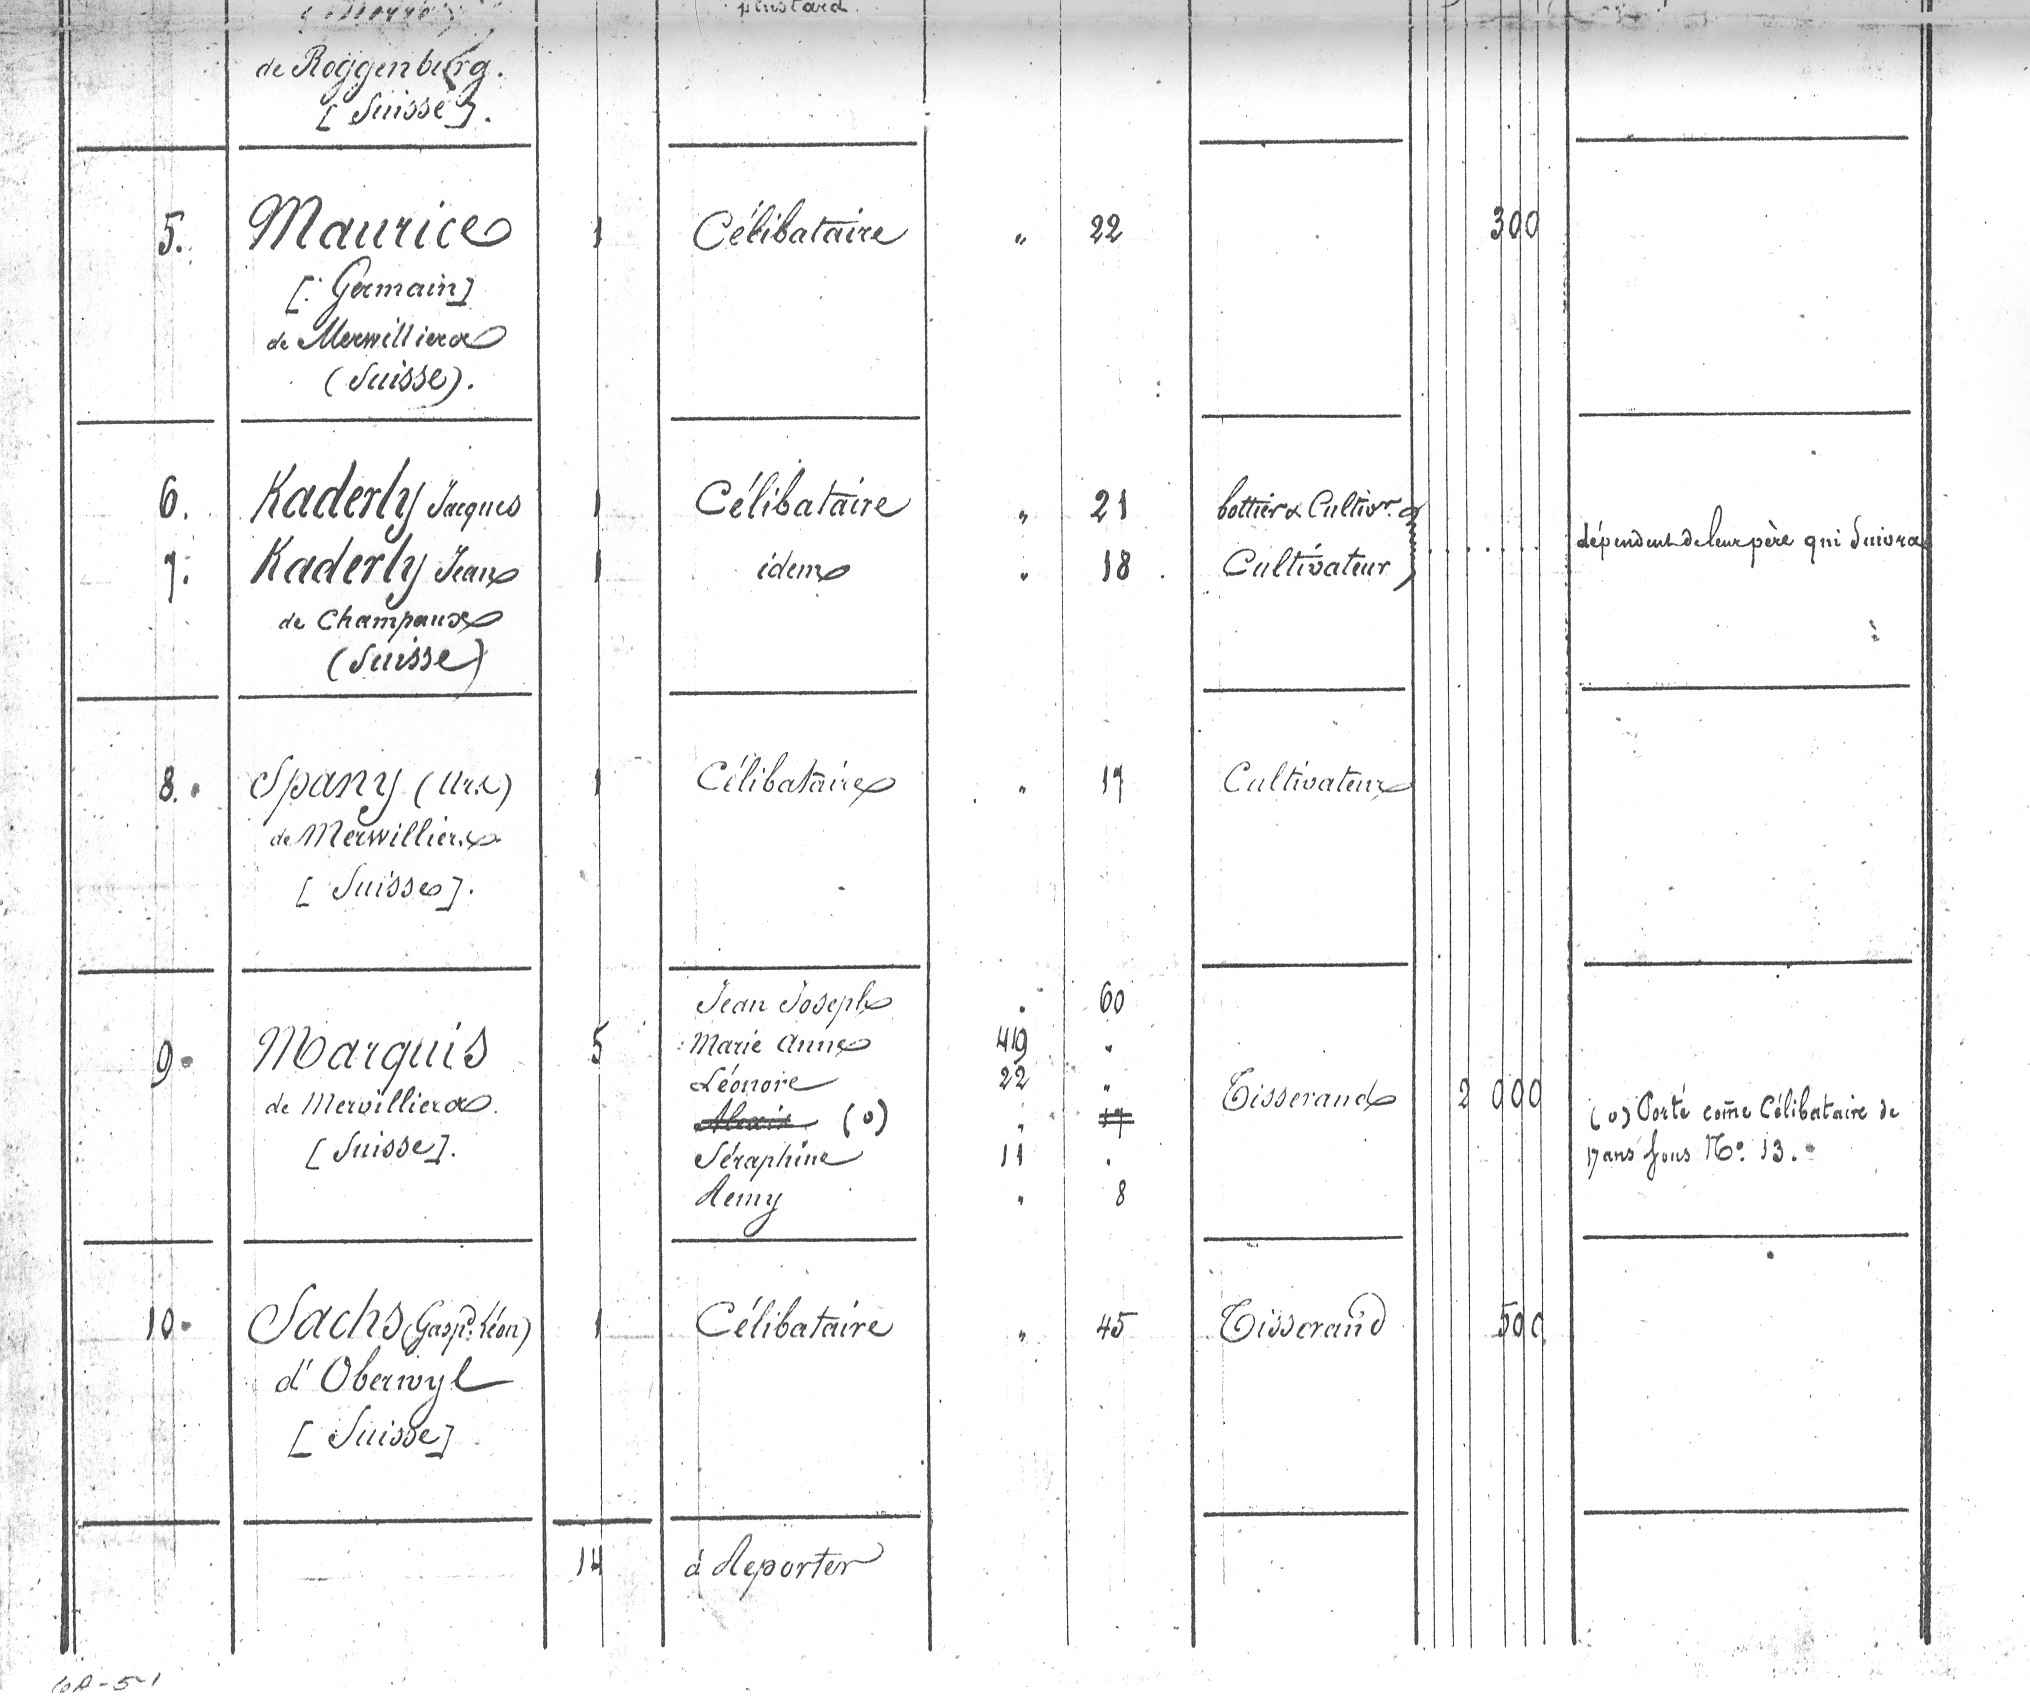 plus tard.
de Roggenburg.
[Suisse].
5. Maurice 1 Célibataire " 22 300
[Germain]
de Merwilliers
(Suisse).
6. Kaderly Jacques 1 Célibataire " 21 bottier & Cultivr.
dépendent de leur père qui Suivra
7. Kaderly Jean 1 idem " 18 Cultivateur
de Champaux
(Suisse)
8. Spany (Urs) 1 Célibataire " 17 Cultivateur
de Merwilliers
[Suisse].
Jean Joseph " 60
9. Marquis 5 Marie Anne 49 "
Léonore 22 "
de Mervilliers Tisserand 2 000
Alexis (o) " 17 (o) Porté come Célibataire de
[Suisse]. Séraphine 11 " 17 ans sous No. 13.
Remy " 8
10. Sachs (Gaspd. Léon) 1 Célibataire " 45 Tisserand 500
d'Oberwyl
[Suisse]
14 à Reporter
6A-5-1